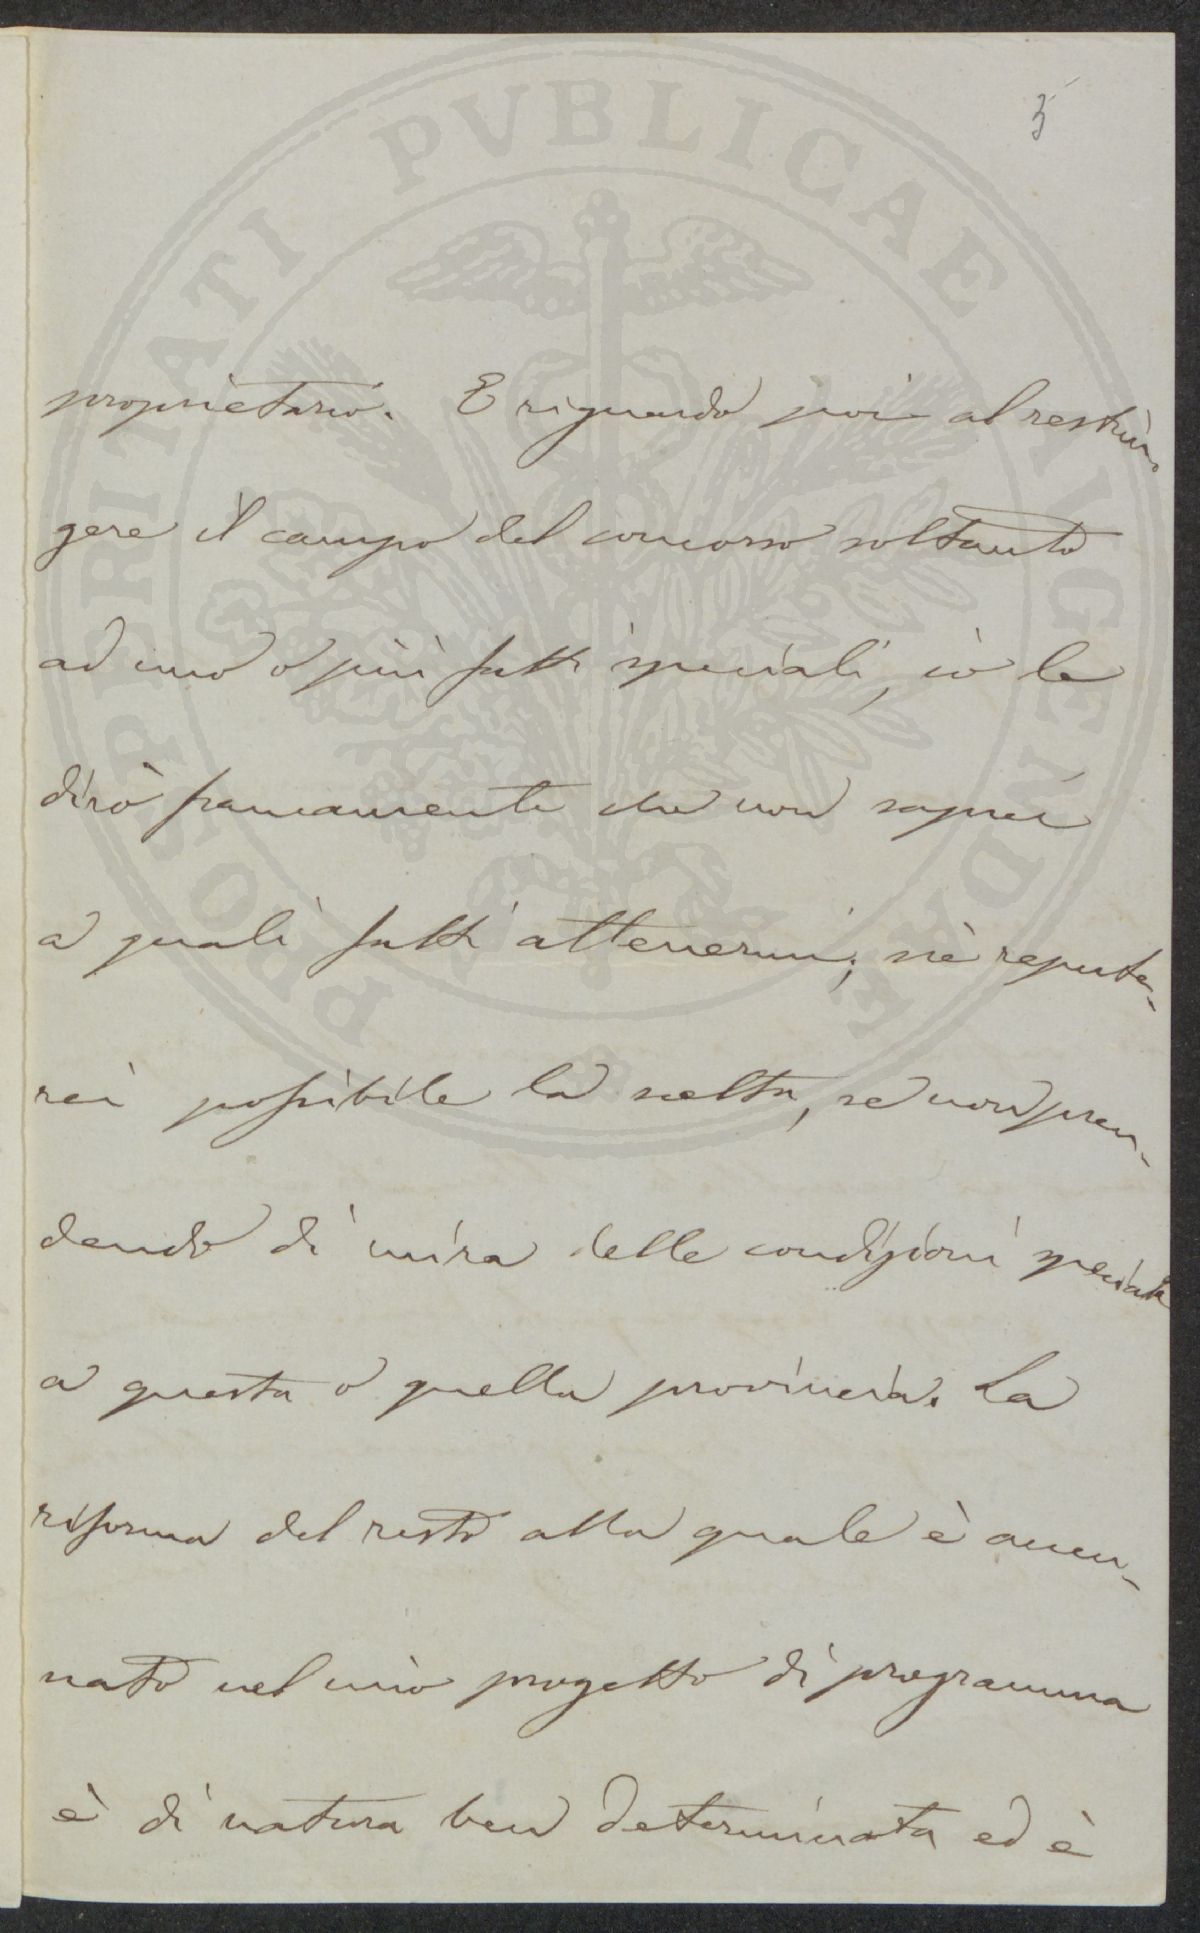 5
proprietario. E riguardo poi al restrin-
gere il campo del concorso soltanto
ad uno o più fatti speciali, io le
dirò francamente che non saprei
a quali fatti attenermi; nè reputa-
rei possibile la scelta, se non pren-
dendo di mira delle condizioni speciali
a questa o quella provincia. La
riforma del resto alla quale è accen-
nato nel mio progetto di programma
è di natura ben determinata ed è
PROSPERITATI PVBLICAE AVGENDAE